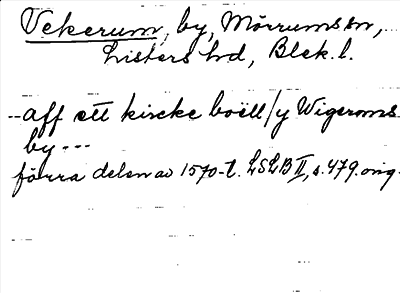 Vekerum, by, Mörrums sn,
Listers hd, Blek. l.
--aff ett kircke boëll / y Wigeroms
by ---
förra delen av 1570-t. LSLB II, s. 479. orig.